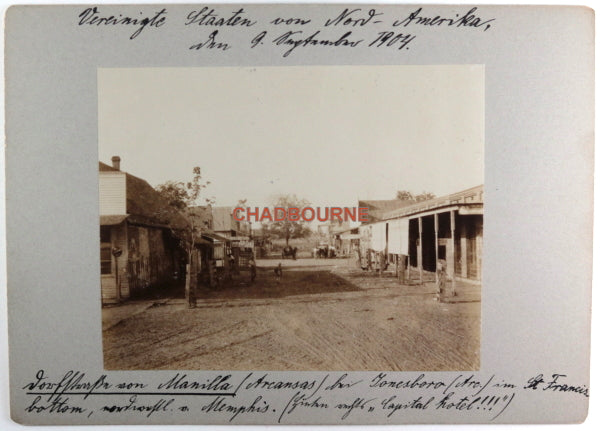 Vereinigte Staaten von Nord-Amerika,
den 9. September 1904.
CHADBOURNE
Dorfstraße von Manilla (Arcansas) bei Jonesboro (Arc.) im St Francis
bottom, nordwestl. v. Memphis. (Hinten rechts „Capital hotel!!!")